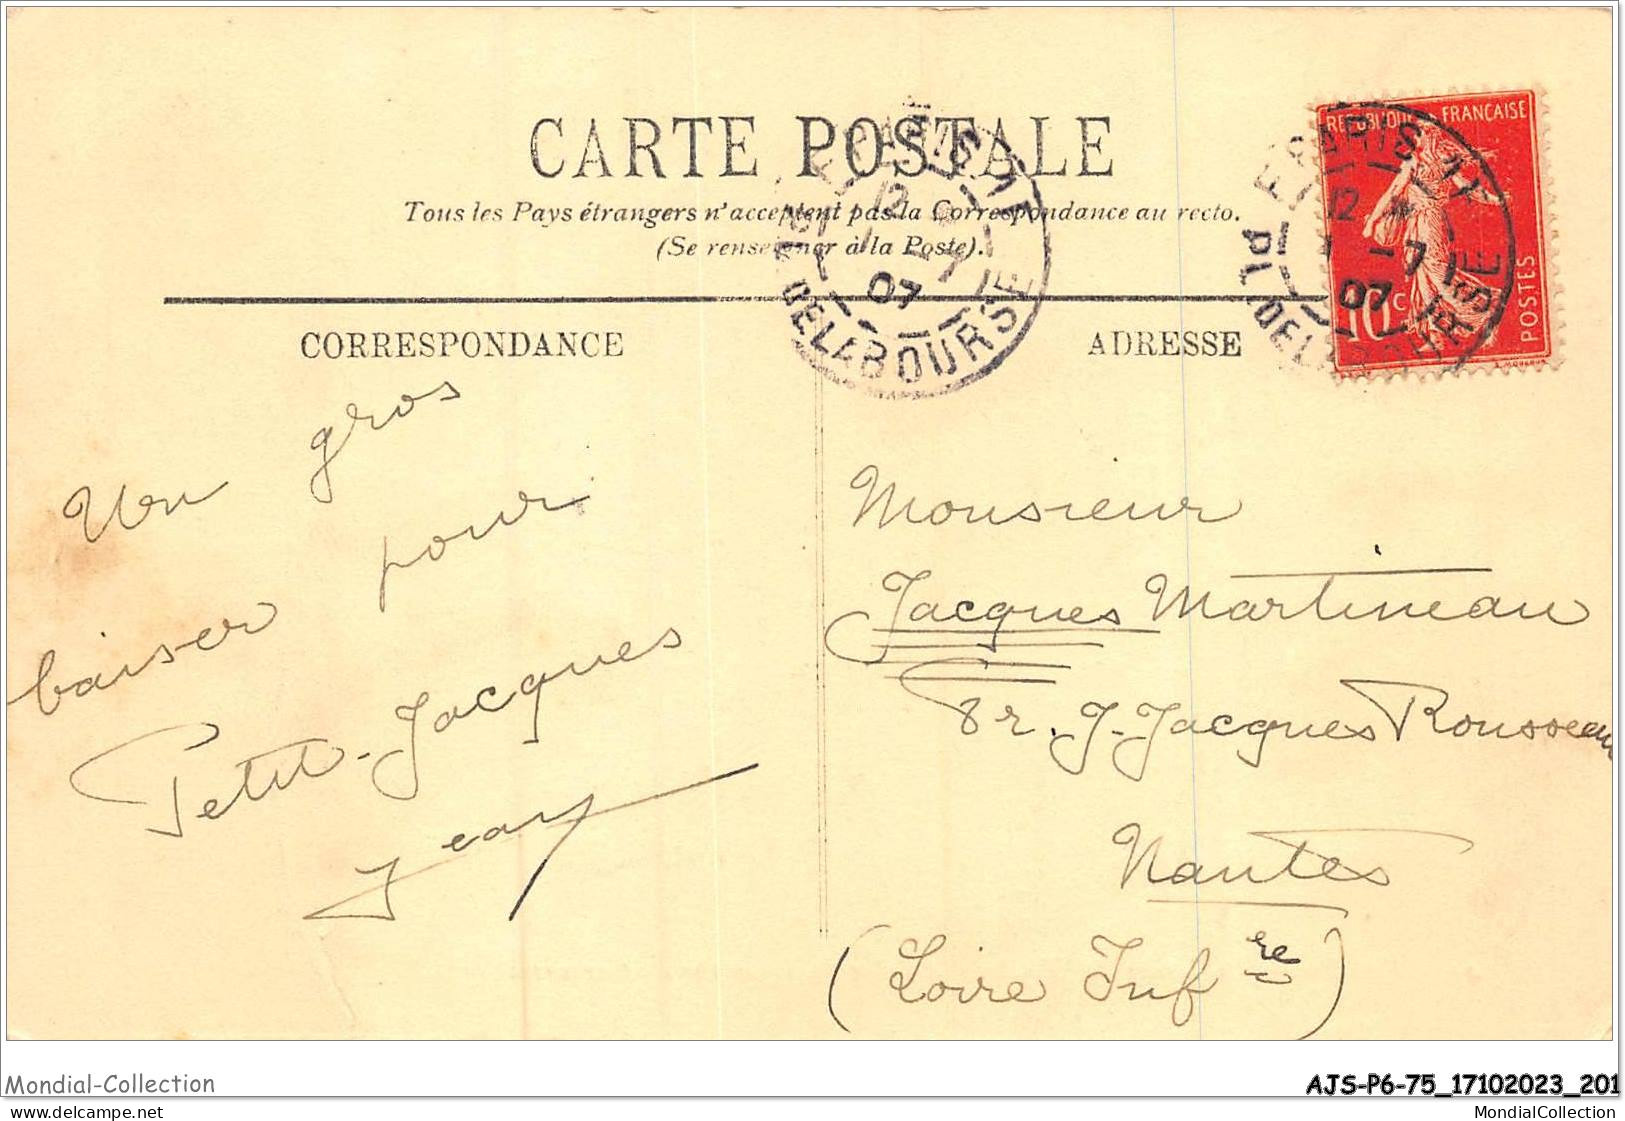 CARTE POSTALE
Tous les Pays étrangers n'acceptent pas la Correspondance au recto.
(Se renseigner à la Poste).
CORRESPONDANCE
Un gros
baiser pour
Petit-Jacques
Jean
ADRESSE
Monsieur
Jacques Martineau
8 r. J-Jacques Rousseau
Nantes
(Loire Infre)
REPUBLIQUE FRANÇAISE
10c
POSTES
PARIS
12
07
PL. DE LA BOURSE
PARIS
12
-7
07
PL. DE LA BOURSE
Mondial-Collection
delcampe.net
AJS-P6-75_17102023_201
MondialCollection